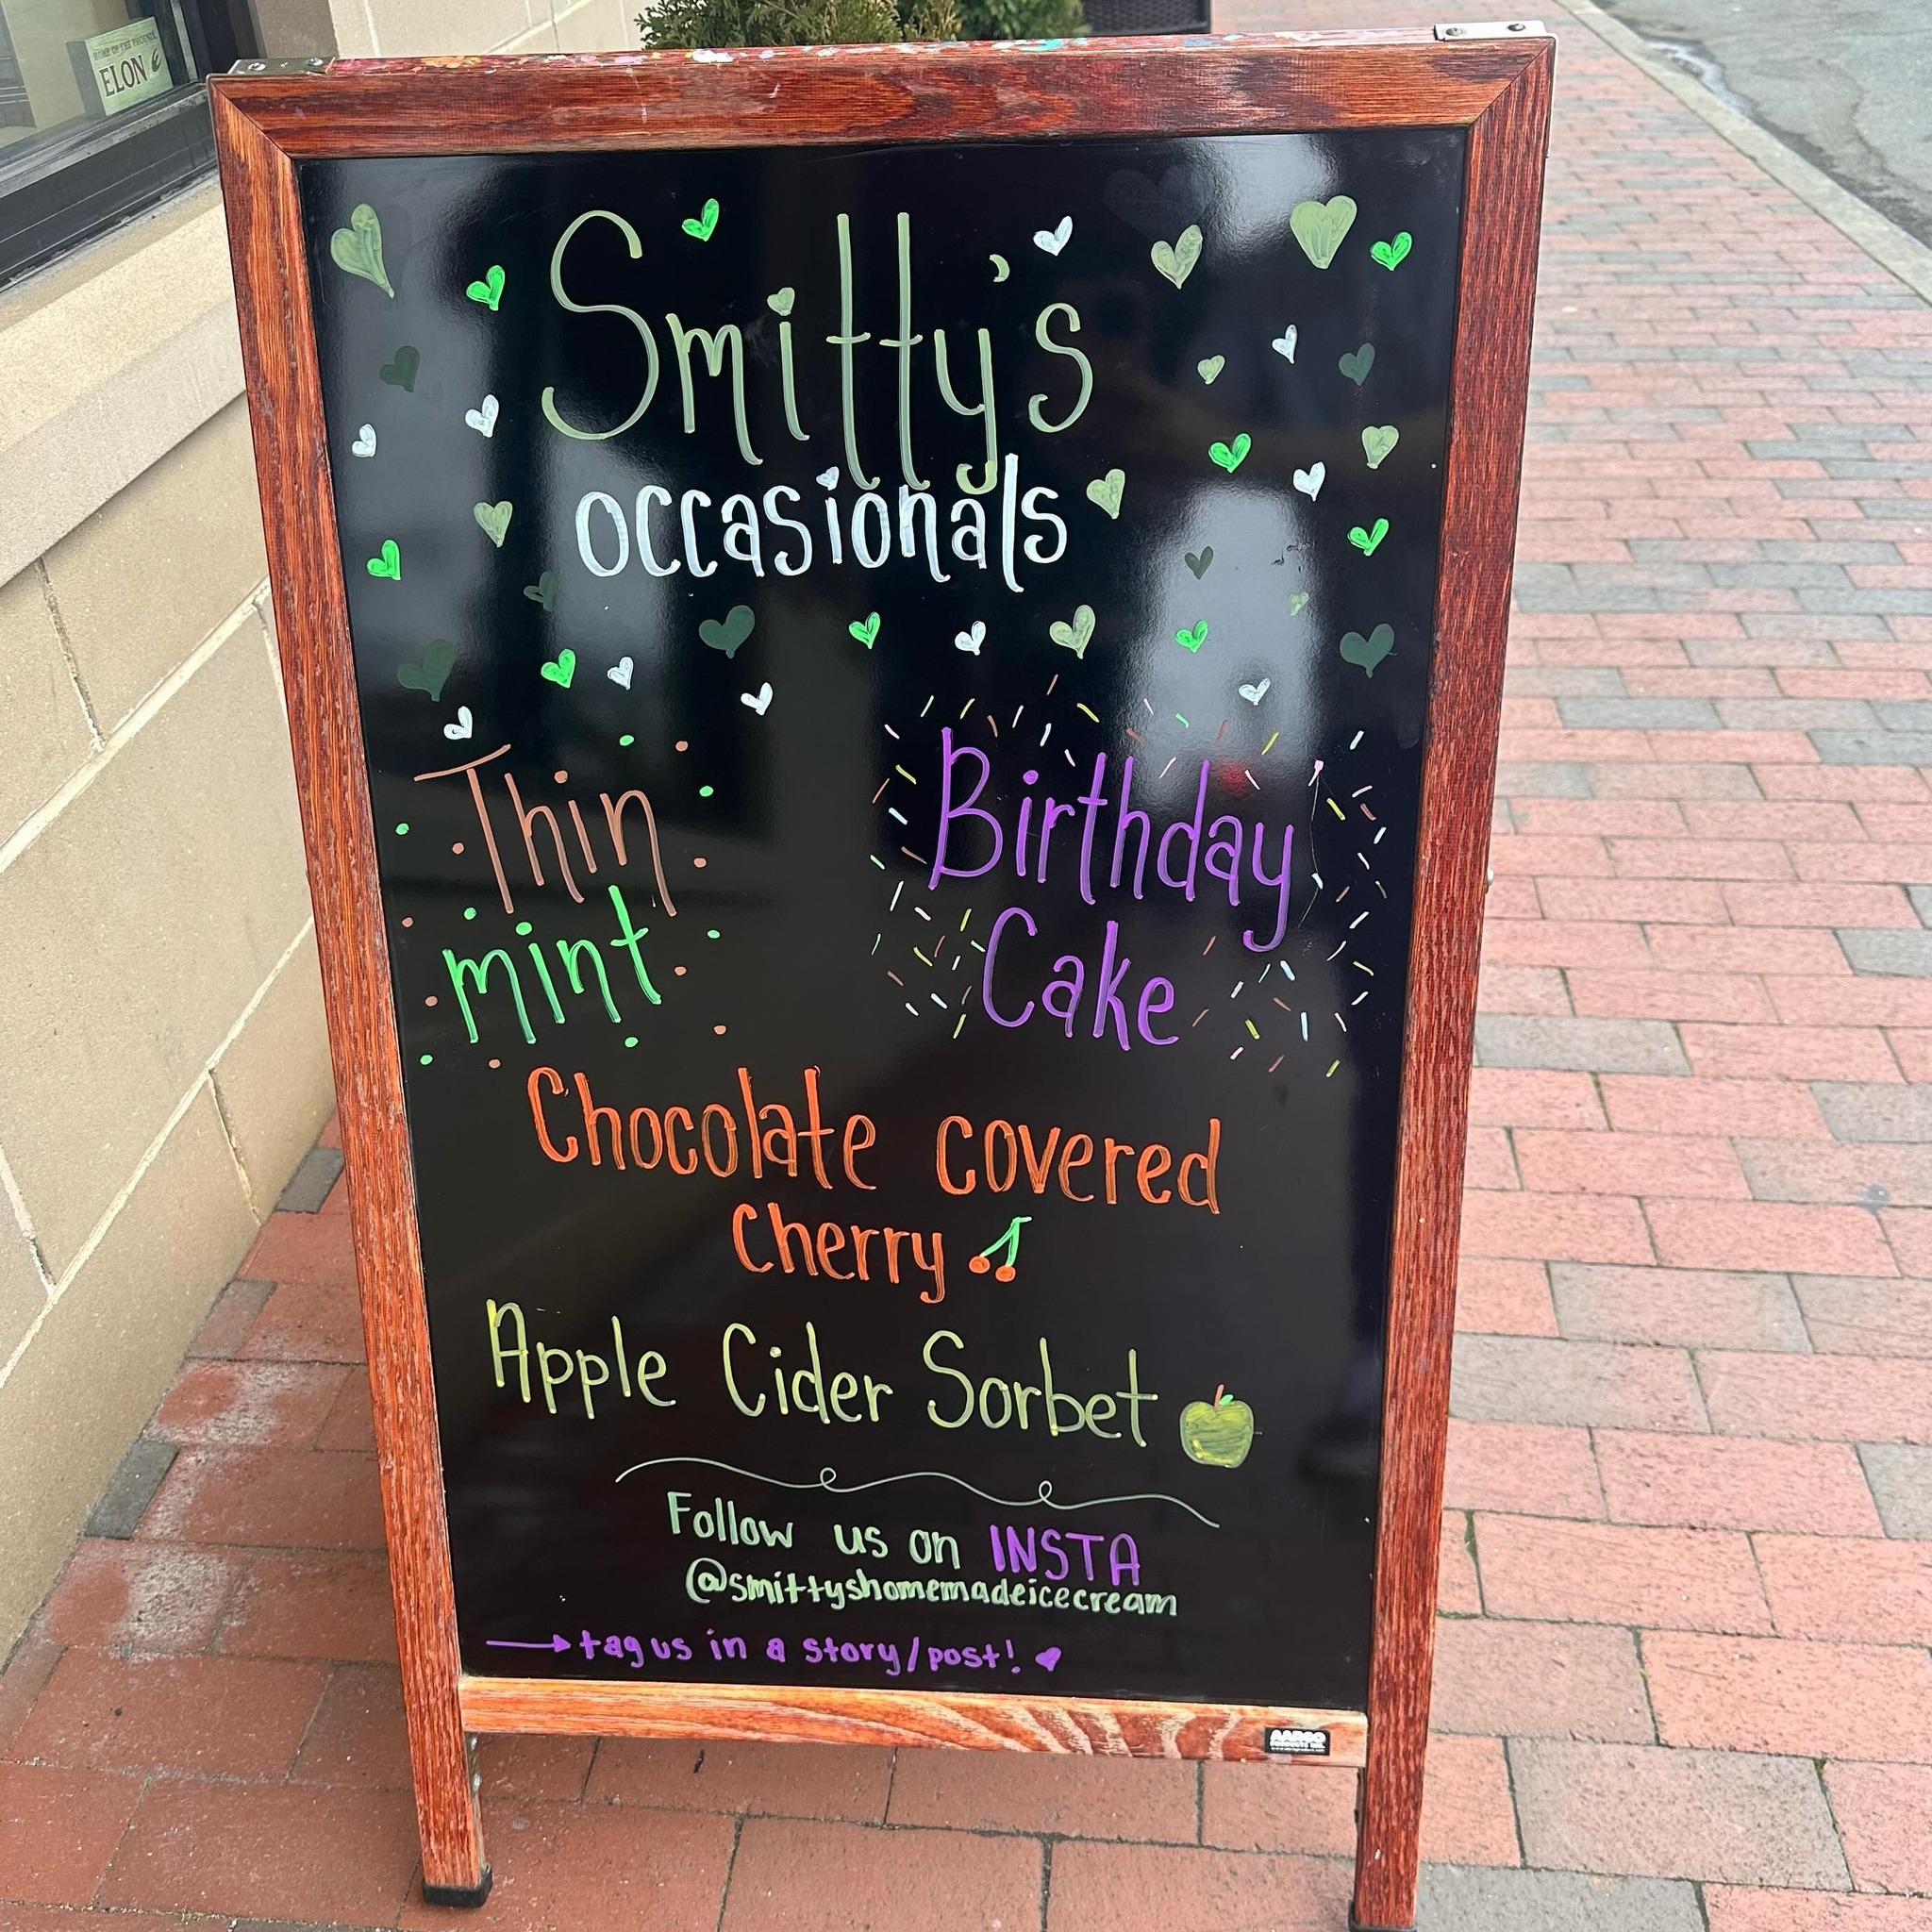 HOME OF THE PHOENIX
ELON
Smitty's
occasionals
Thin
mint
Birthday
Cake
Chocolate covered
Cherry
Apple Cider Sorbet
Follow us on INSTA
@smittyshomemadeicecream
tag us in a story/post!
AARCO